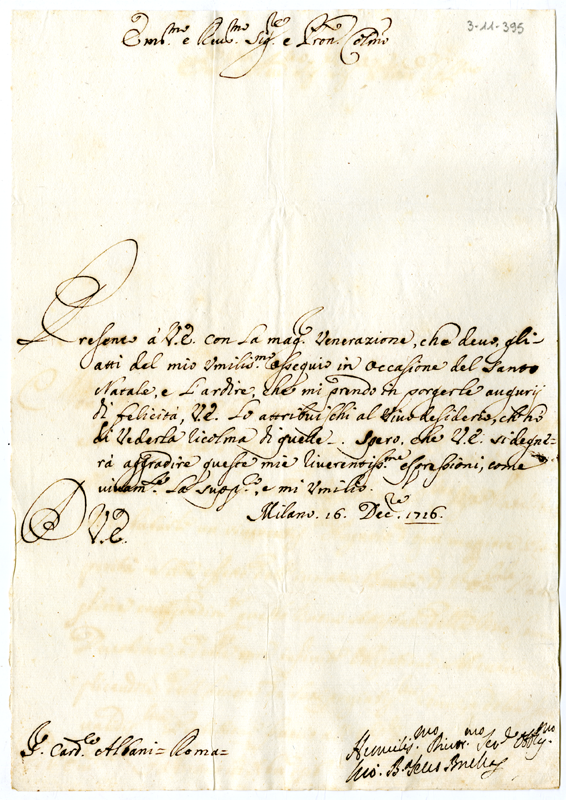 3-11-395
Em.mo e Reu.mo Sig.re e Pron. Colmo
Presento à V.E. con La mag.re Venerazione, che deuo, gli
atti del mio Vmilis.mo ossequio in Occasione del Santo
Natale, e L'ardire, che mi prendo in porgerle augurij
di felicità, V.E. Lo attribuischi al Viuo desiderio, ch'hò
di Vederla ricolma di quelle. Spero, che V.E. si degne=
rà aggradire queste mie riuerentiss.me espressioni, come
viuam.te La supp.co, e mi Vmilio.
Milano. 16. Dec.re 1716.
V.E.
S.r Card.le Albani= Roma=
Humilis.mo Diuot.mo Ser.e Obblig.mo
Gio. B.